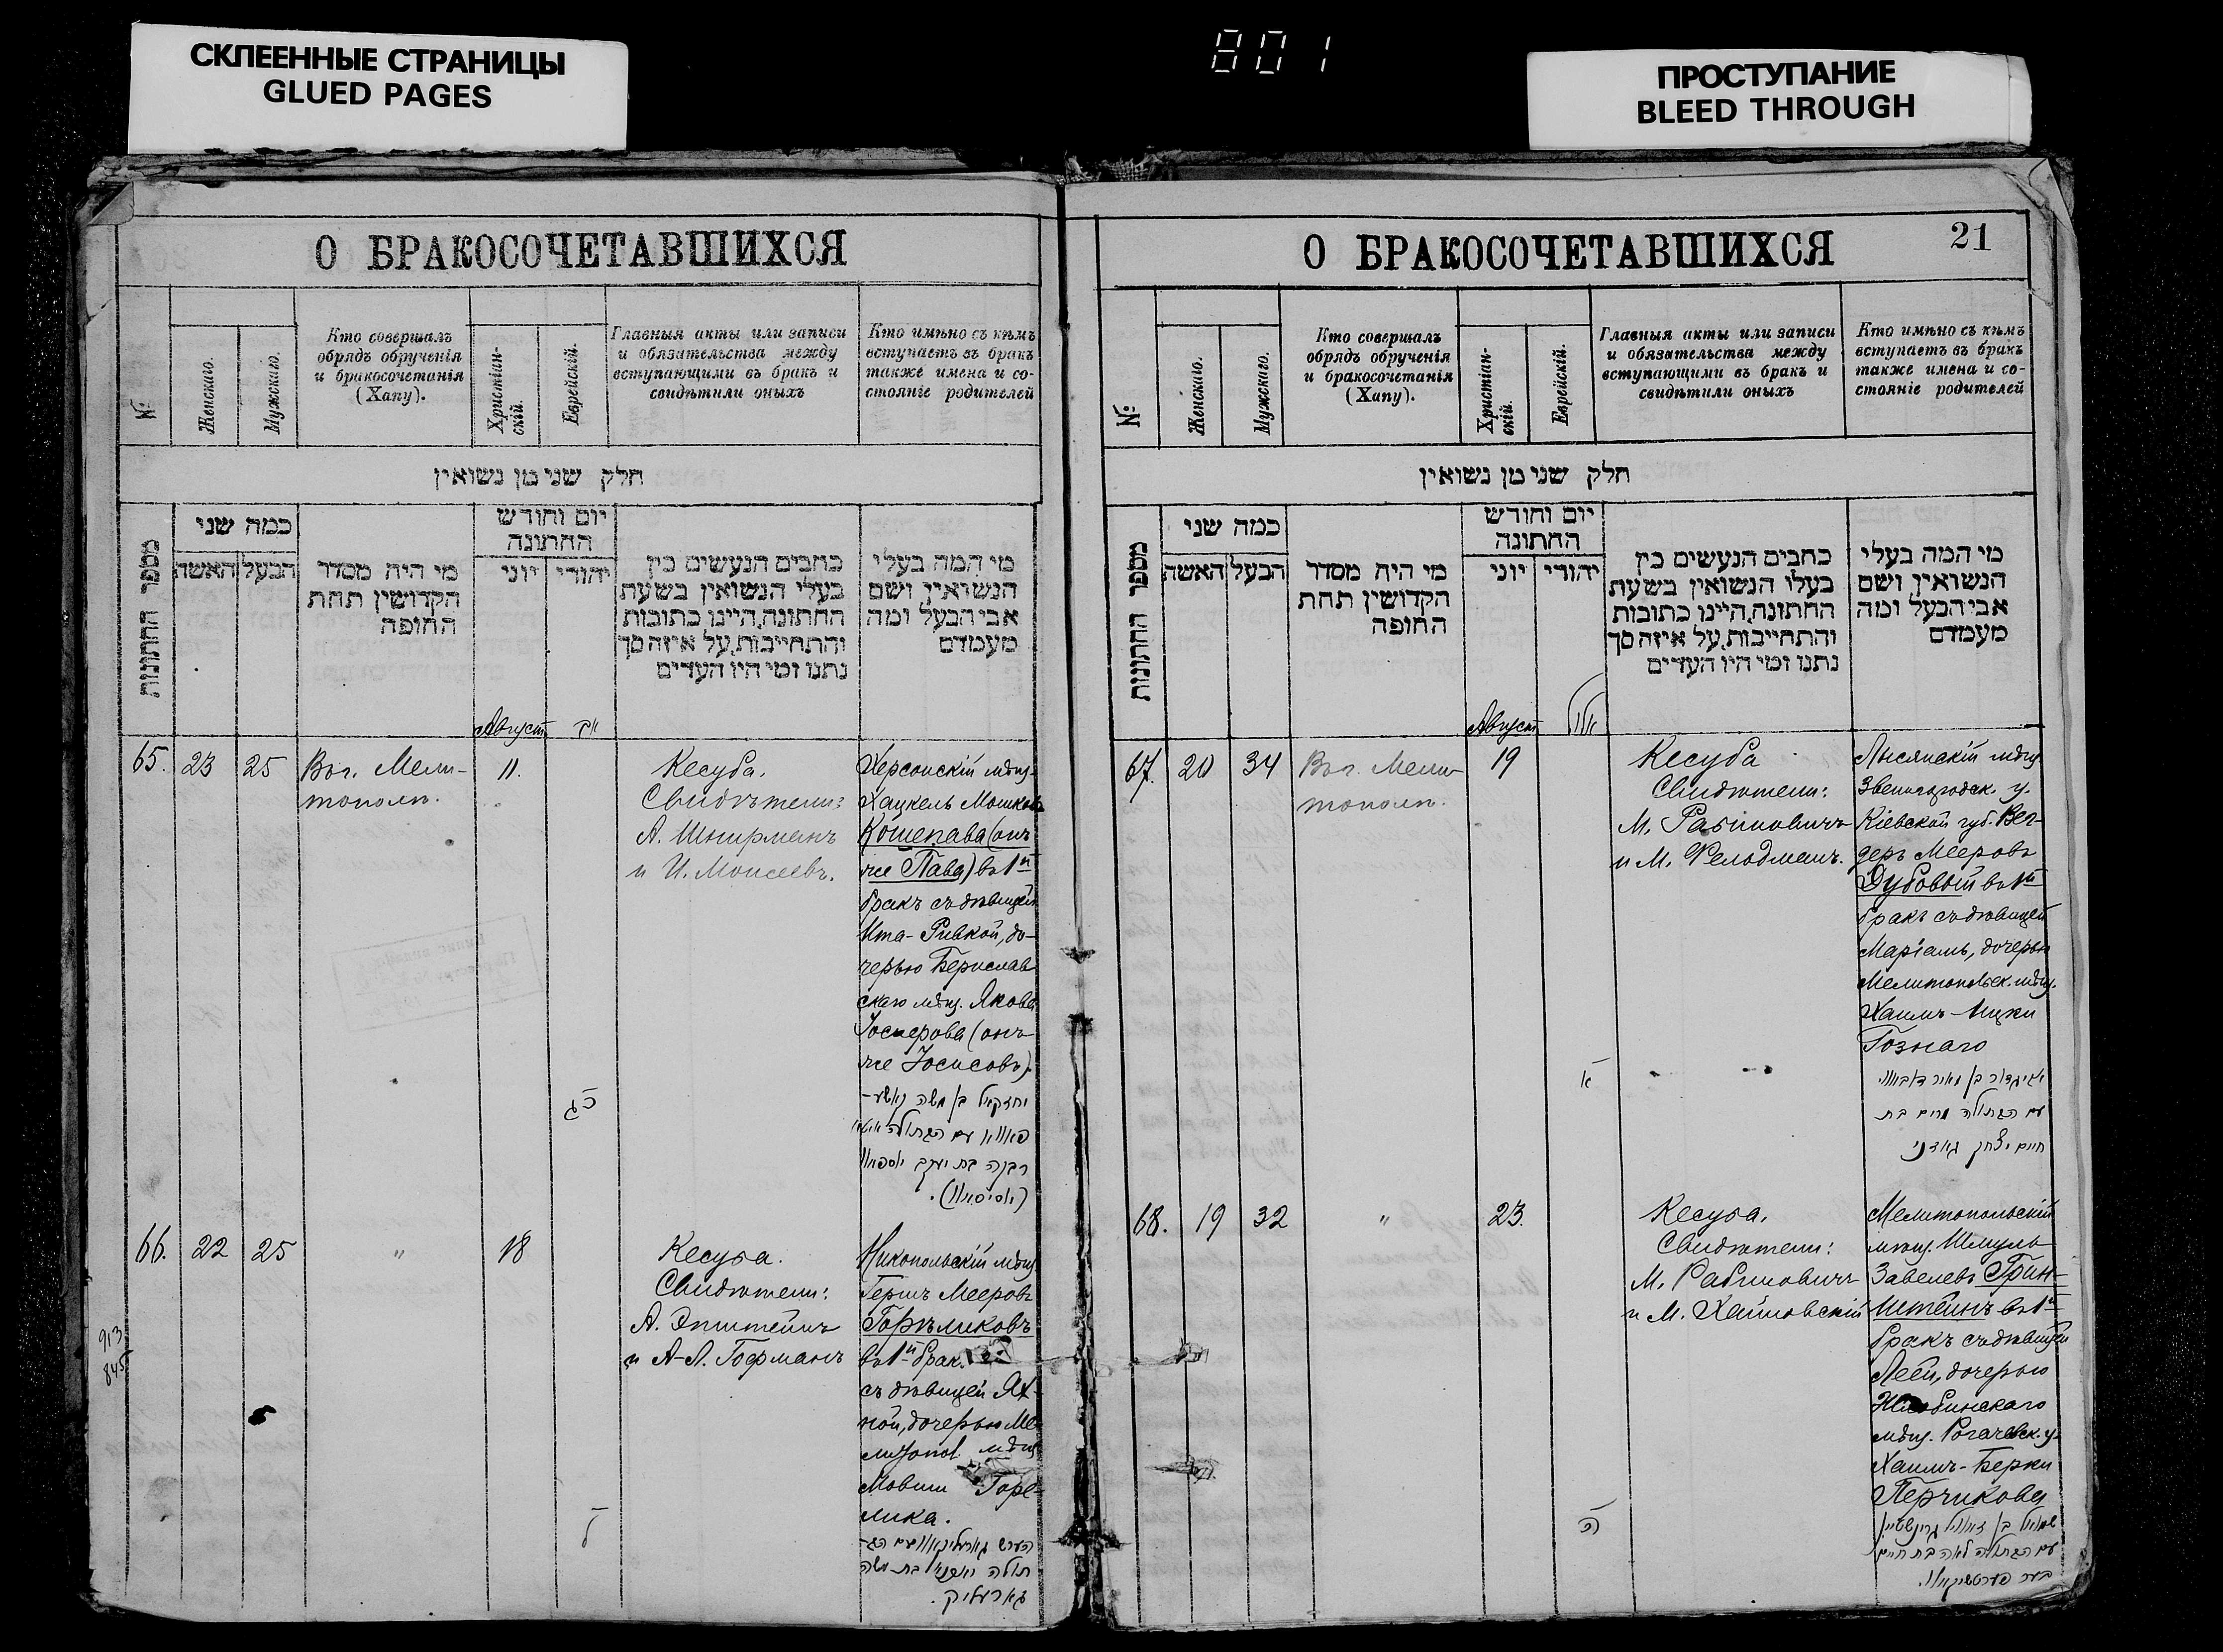 СКЛЕЕННЫЕ СТРАНИЦЫ
GLUED PAGES
801
ПРОСТУПАНИЕ
BLEED THROUGH
О БРАКОСОЧЕТАВШИХСЯ
№
Женскаго.
Мужскаго.
Кто совершалъ
обрядъ обрученія
и бракосочетанія
(Хапу).
Христіан-
скій.
Еврейскій.
Главныя акты или записи
и обязательства между
вступающими въ бракъ и
свидѣтили оныхъ
Кто имѣно съ кѣмъ
вступаетъ въ бракъ
также имена и со-
стояніе родителей
חלק שני מן נשואין
מספר החתונות
כמה שני
האשה
הבעל
מי היה מסדר
הקדושין תחת
החופה
יום וחודש
החתונה
יוני
יהודי
כתבים הנעשים בין
בעלי הנשואין בשעת
החתונה, היינו כתובות
והתחייבות, על איזה סך
נתנו ומי היו העדים
מי המה בעלי
הנשואין ושם
אבי הבעל ומה
מעמדם
Август
65.
23
25
Въ г. Мели-
тополѣ.
11.
כג
Кесуба.
Свидѣтели:
А. Шнирманъ
и И. Моисеевъ.
Херсонскій мѣщ.
Хацкель Мошковъ
Кошепава (онъ
же Пава) въ 1й
бракъ съ дѣвицей
Ита-Ривкой, до-
черью Берислав
скаго мѣщ. Якова
(онъ
же
יחזקאל בן משה קאשע-
פאווא עם הבתולה איטא
רבקה בת יעקב
66.
22
25
"
18
ל
Кесуба.
Свидѣтели:
А. Эпштейнъ
и А-Л. Гофманъ
Никопольскій мѣщ
Гершъ Мееровъ
Горѣликовъ
въ 1й брак.
съ дѣвицей Ях-
ной, дочерью Ме-
литопол. мѣщ
Мовши Горе-
лика.
הערש גארעליקאוו עם הב-
תולה בת משה
גארעליק.
913
845
О БРАКОСОЧЕТАВШИХСЯ
21
№
Женскаго.
Мужскаго.
Кто совершалъ
обрядъ обрученія
и бракосочетанія
(Хапу).
Христіан-
скій.
Еврейскій.
Главныя акты или записи
и обязательства между
вступающими въ бракъ и
свидѣтили оныхъ
Кто имѣно съ кѣмъ
вступаетъ въ бракъ
также имена и со-
стояніе родителей
חלק שני מן נשואין
מספר החתונות
כמה שני
האשה
הבעל
מי היה מסדר
הקדושין תחת
החופה
יום וחודש
החתונה
יוני
יהודי
כתבים הנעשים בין
בעלי הנשואין בשעת
החתונה, היינו כתובות
והתחייבות, על איזה סך
נתנו ומי היו העדים
מי המה בעלי
הנשואין ושם
אבי הבעל ומה
מעמדם
Август
אלול
67.
20
34
Въ г. Мели-
тополѣ.
19
א
Кесуба
Свидѣтели:
М. Рабиновичъ
и М. Фельдманъ.
Лысянскій мѣщ
Звенигородск. у.
Кіевской губ.
Мееровъ
Дубовый въ 1й
бракъ съ дѣвицей
Маріамъ, дочерью
Мелитопольск. мѣщ.
Хаимъ-Ицки
Гознаго
אביגדור בן מאיר
עם הבתולה מרים בת
חיים יצחק
68.
19
32
"
23.
ה
Кесуба.
Свидѣтели:
М. Рабиновичъ
и М. Хаймовскій
Мелитопольскій
мѣщ. Шмуль
Завелевъ Грин-
штейнъ въ 1й
бракъ съ дѣвицей
Леей, дочерью
Жлобинскаго
мѣщ. Рогачевск. у.
Хаимъ-Берки
Перчикова
שמואל בן זאוול גרינשטיין
עם הבתולה לאה בת חיים
בער פערטשיקאוו.